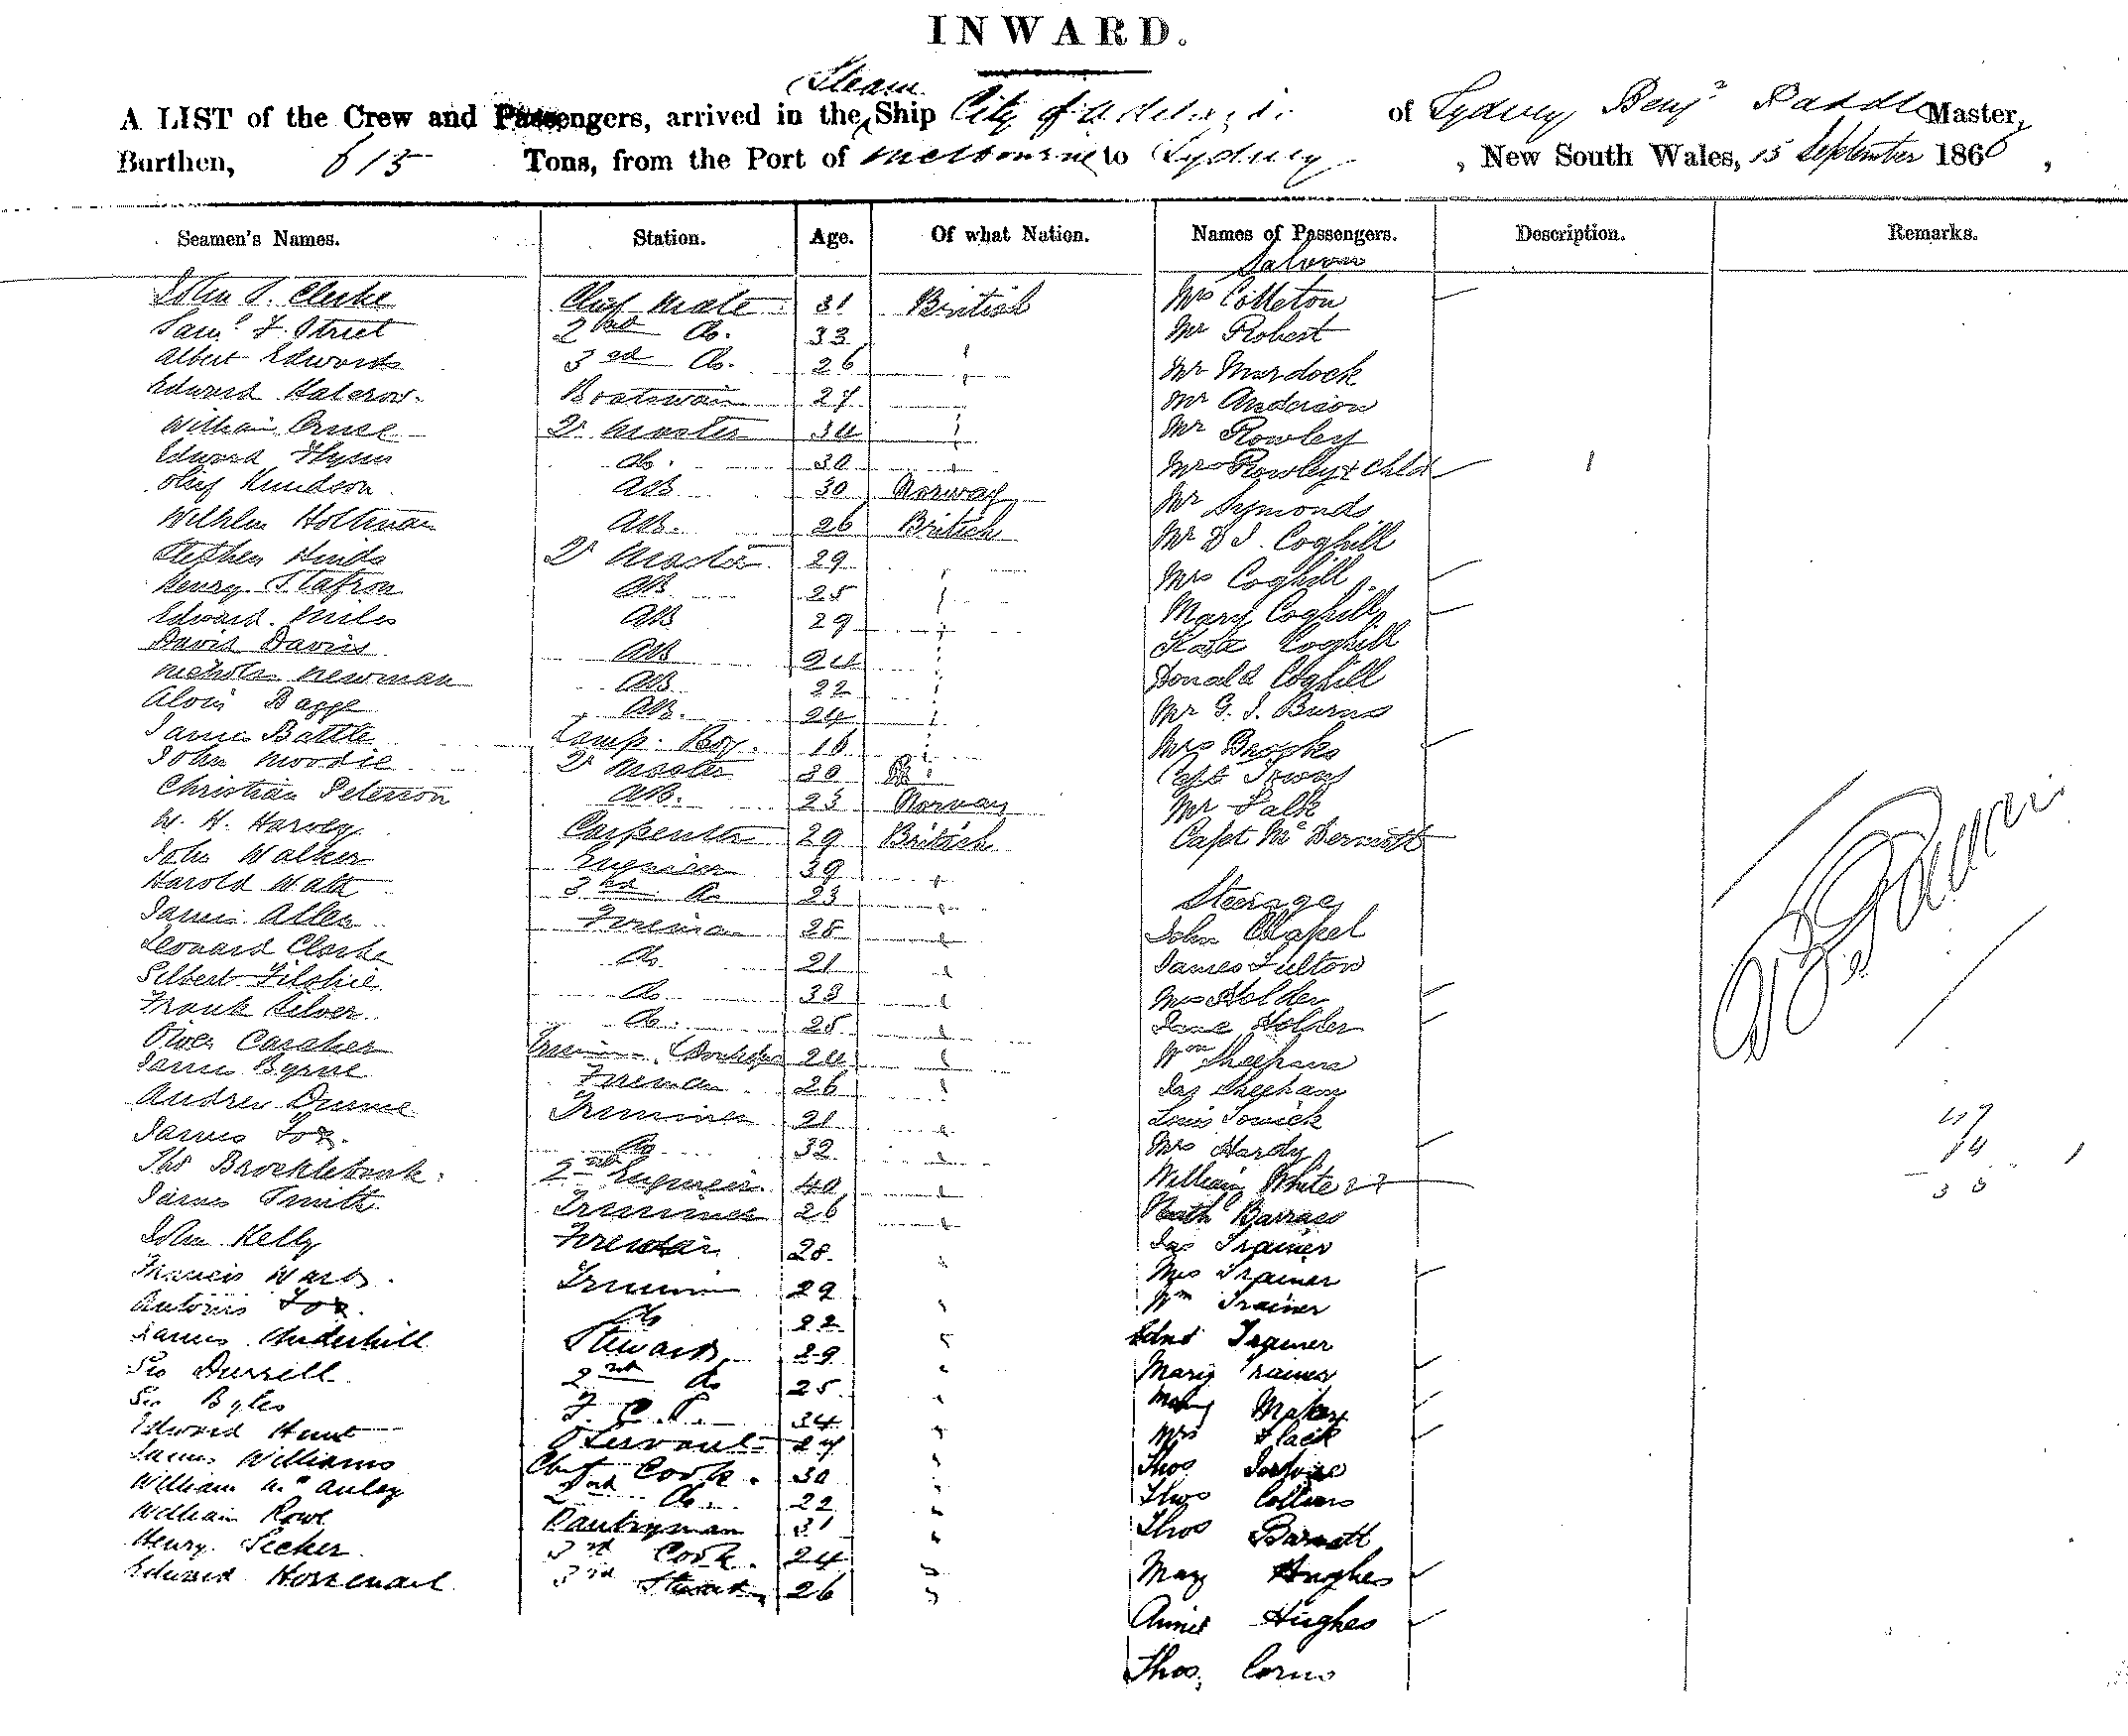 INWARD.
Steam
A LIST of the Crew and Passengers, arrived in the Ship City of Adelaide of Sydney Benj.n Paddle Master,
Burthen, 615 Tons, from the Port of Melbourne to Sydney, New South Wales, 15 September 1866,
Seamen's Names. Station. Age. Of what Nation. Names of Passengers. Description. Remarks.
Saloon
John S. Clerke Chief Mate 31 British Mrs Colleton
Saml F. Street 2nd Do. 33 Mr Robert
Albert Edwards 3rd Do. 26 Mr Murdock
Edward Halcrow. Boatswain 27 Mr Anderson
William Cruse Qr Master 34 Mr Rowley
Edward Flynn do. 30 Mrs Rowley & Child 1
Oluf Knudson AB 30 Norway Mr Symonds
Wilhlm Holtman AB. 26 British Mr D J. Coghill
Stephen Hinds Qr Master 29 Mrs Coghill
Henry Stafron AB 25 Mary Coghill
Edward Miles AB 29 Kate Coghill
David Davies AB 24 Donald Coghill
Nicholas Newman AB 22 Mr G. J. Burns
Alois Bagge AB. 24 Mrs Brooks
James Battle Lamp. Boy. 16 Capt Towns
John Moodie Qr Master 30 Mr Falk
Christian Peterson AB. 23 Norway Capt McDermott
W. H. Harvey Carpenter 29 British
John Walker Engineer 39 Steerage
Harold Watt 3rd Do 23 John Chapel
James Allen Fireman 28 James Fulton
Leonard Clarke Do 21 Mrs Holder
Gilbert Filshie Do 33 Jane Holder
Frank Silver Do. 25 Wm Sheehans
Oiver Caraher 24 Jas Sheehan
James Byrne Fireman 26 Louis
Andrew Trimmer 21 Mrs Hardy
James Fox. Do 32 William White
Ths Brocklebank. 2nd Engineer 40 Barrass
James Smith Trimmer 26 Jas Trainer
John Kelly Fireman 28. Mrs Trainer
Francis Ward. Trimmer 29 Wm Trainer
Antonis Fox. Do 22 Edwd Trainer
James Underhill Steward 29 Mary Trainer
Geo Durrell 2nd Do 25 Mary
Geo Byles F. C. S. 34 Mrs Slack
Edward Hunt O Servant 27 Thos
James Williams Chief Cook. 30 Thos Collins
William McAuley 2nd Do. 22 Thos Barnett
William Rowe Pantryman 31 Mary Hughes
Henry Secker 3rd Cook. 24 Annie Hughes
Edward 3rd Steward 26 Thos. Corns